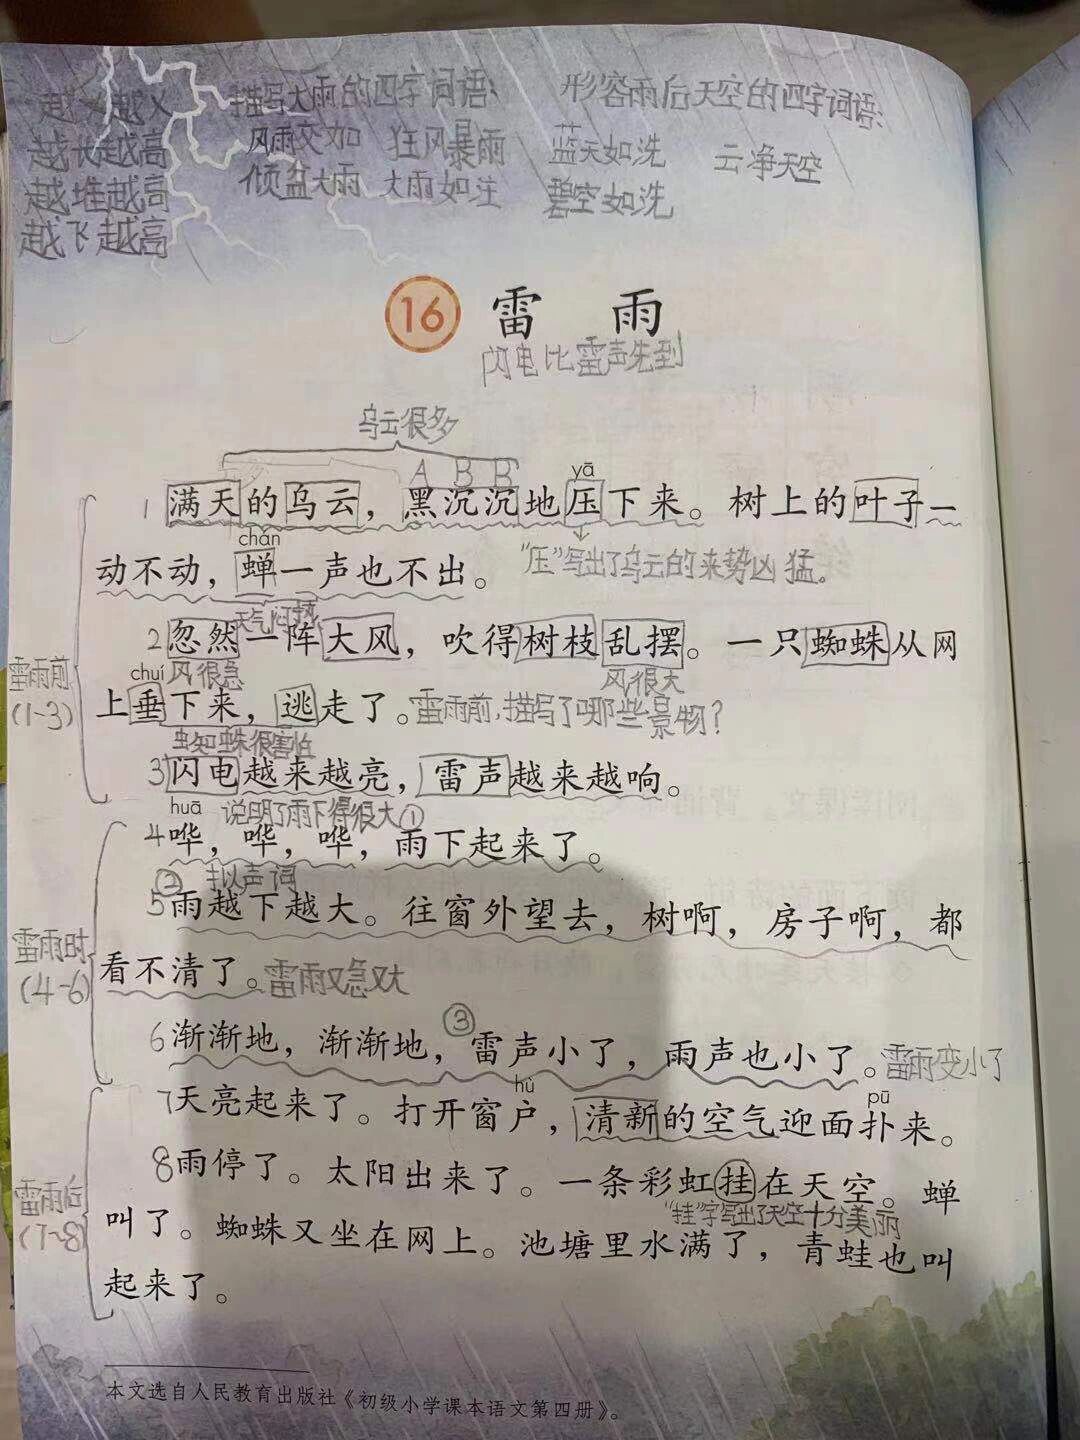 越大越
描写大雨的四字词语:
形容雨后天空的四字词语:
越长越高
风雨交加 狂风暴雨
蓝天如洗 云净天空
越堆越高
倾盆大雨 大雨如注
碧空如洗
越飞越高
16 雷雨
闪电比雷声先到
乌云很多
A B B
yā
1 满天的乌云，黑沉沉地压下来。树上的叶子一
chán
动不动，蝉一声也不出。
"压"写出了乌云的来势凶猛。
天气闷热
2 忽然一阵大风，吹得树枝乱摆。一只蜘蛛从网
雷雨前
(1-3)
chuí 风很急
风很大
上垂下来，逃走了。雷雨前,描写了哪些景物?
蜘蛛很害怕
3 闪电越来越亮，雷声越来越响。
huā 说明了雨下得很大①
4 哗，哗，哗，雨下起来了。
② 拟声词
5 雨越下越大。往窗外望去，树啊，房子啊，都
雷雨时
(4-6)
看不清了。雷雨又急又大
③
6 渐渐地，渐渐地，雷声小了，雨声也小了。雷雨变小了
hù pū
7 天亮起来了。打开窗户，清新的空气迎面扑来。
8 雨停了。太阳出来了。一条彩虹挂在天空。蝉
雷雨后
(7-8)
"挂"字写出了天空十分美丽
叫了。蜘蛛又坐在网上。池塘里水满了，青蛙也叫
起来了。
本文选自人民教育出版社《初级小学课本语文第四册》。